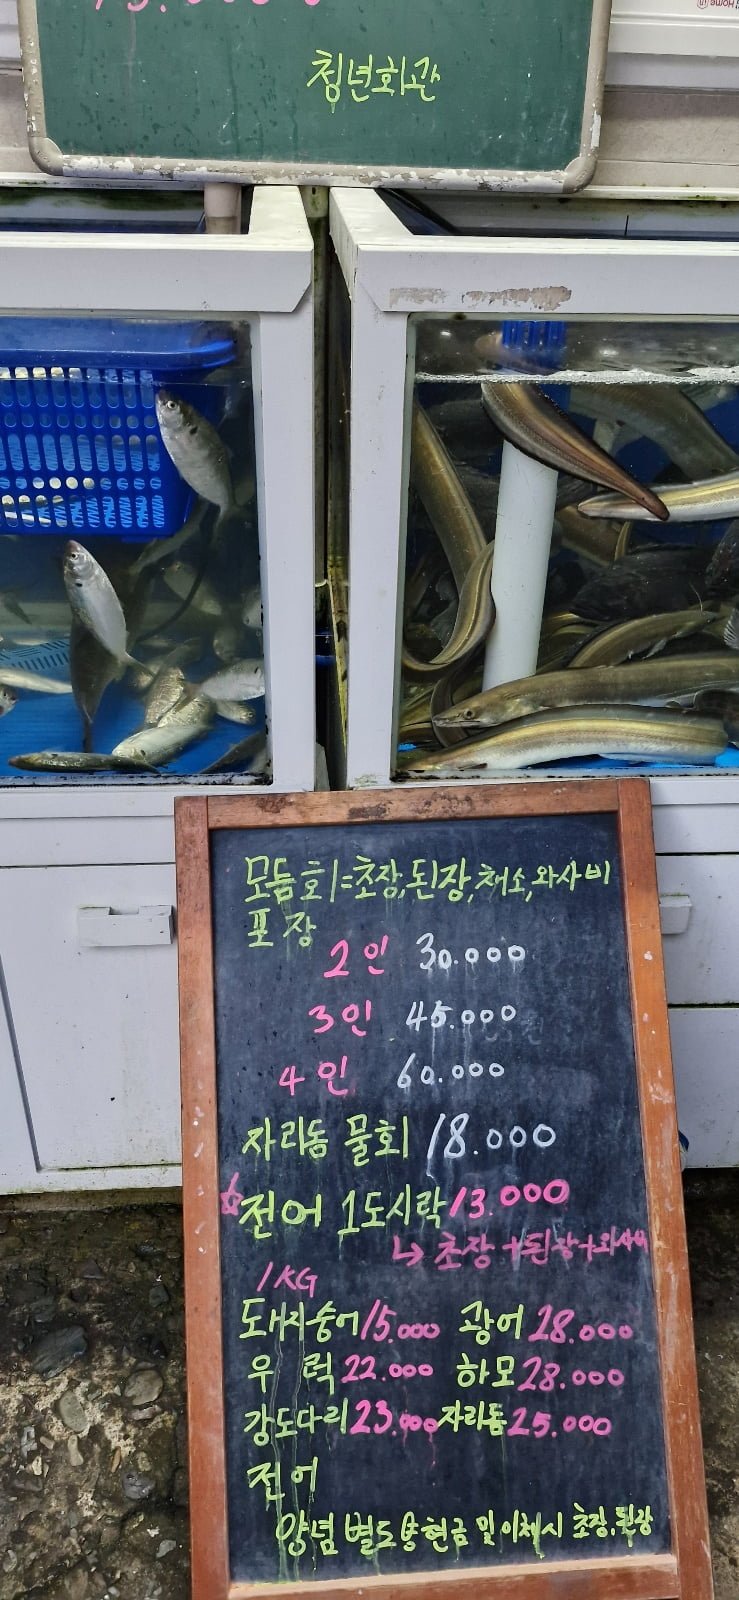 청년회관
모듬회=초장,된장,채소,와사비
포장
2인 30.000
3인 45.000
4인 60.000
자리돔 물회 18.000
☆전어 1도시락 13.000
↳ 초장+된장+와사비
1KG
돼지숭어 15.000 광어 28.000
우럭 22.000 하모 28.000
강도다리 23.000 자리돔 25.000
전어
양념 별도 현금 및 이체시 초장,된장